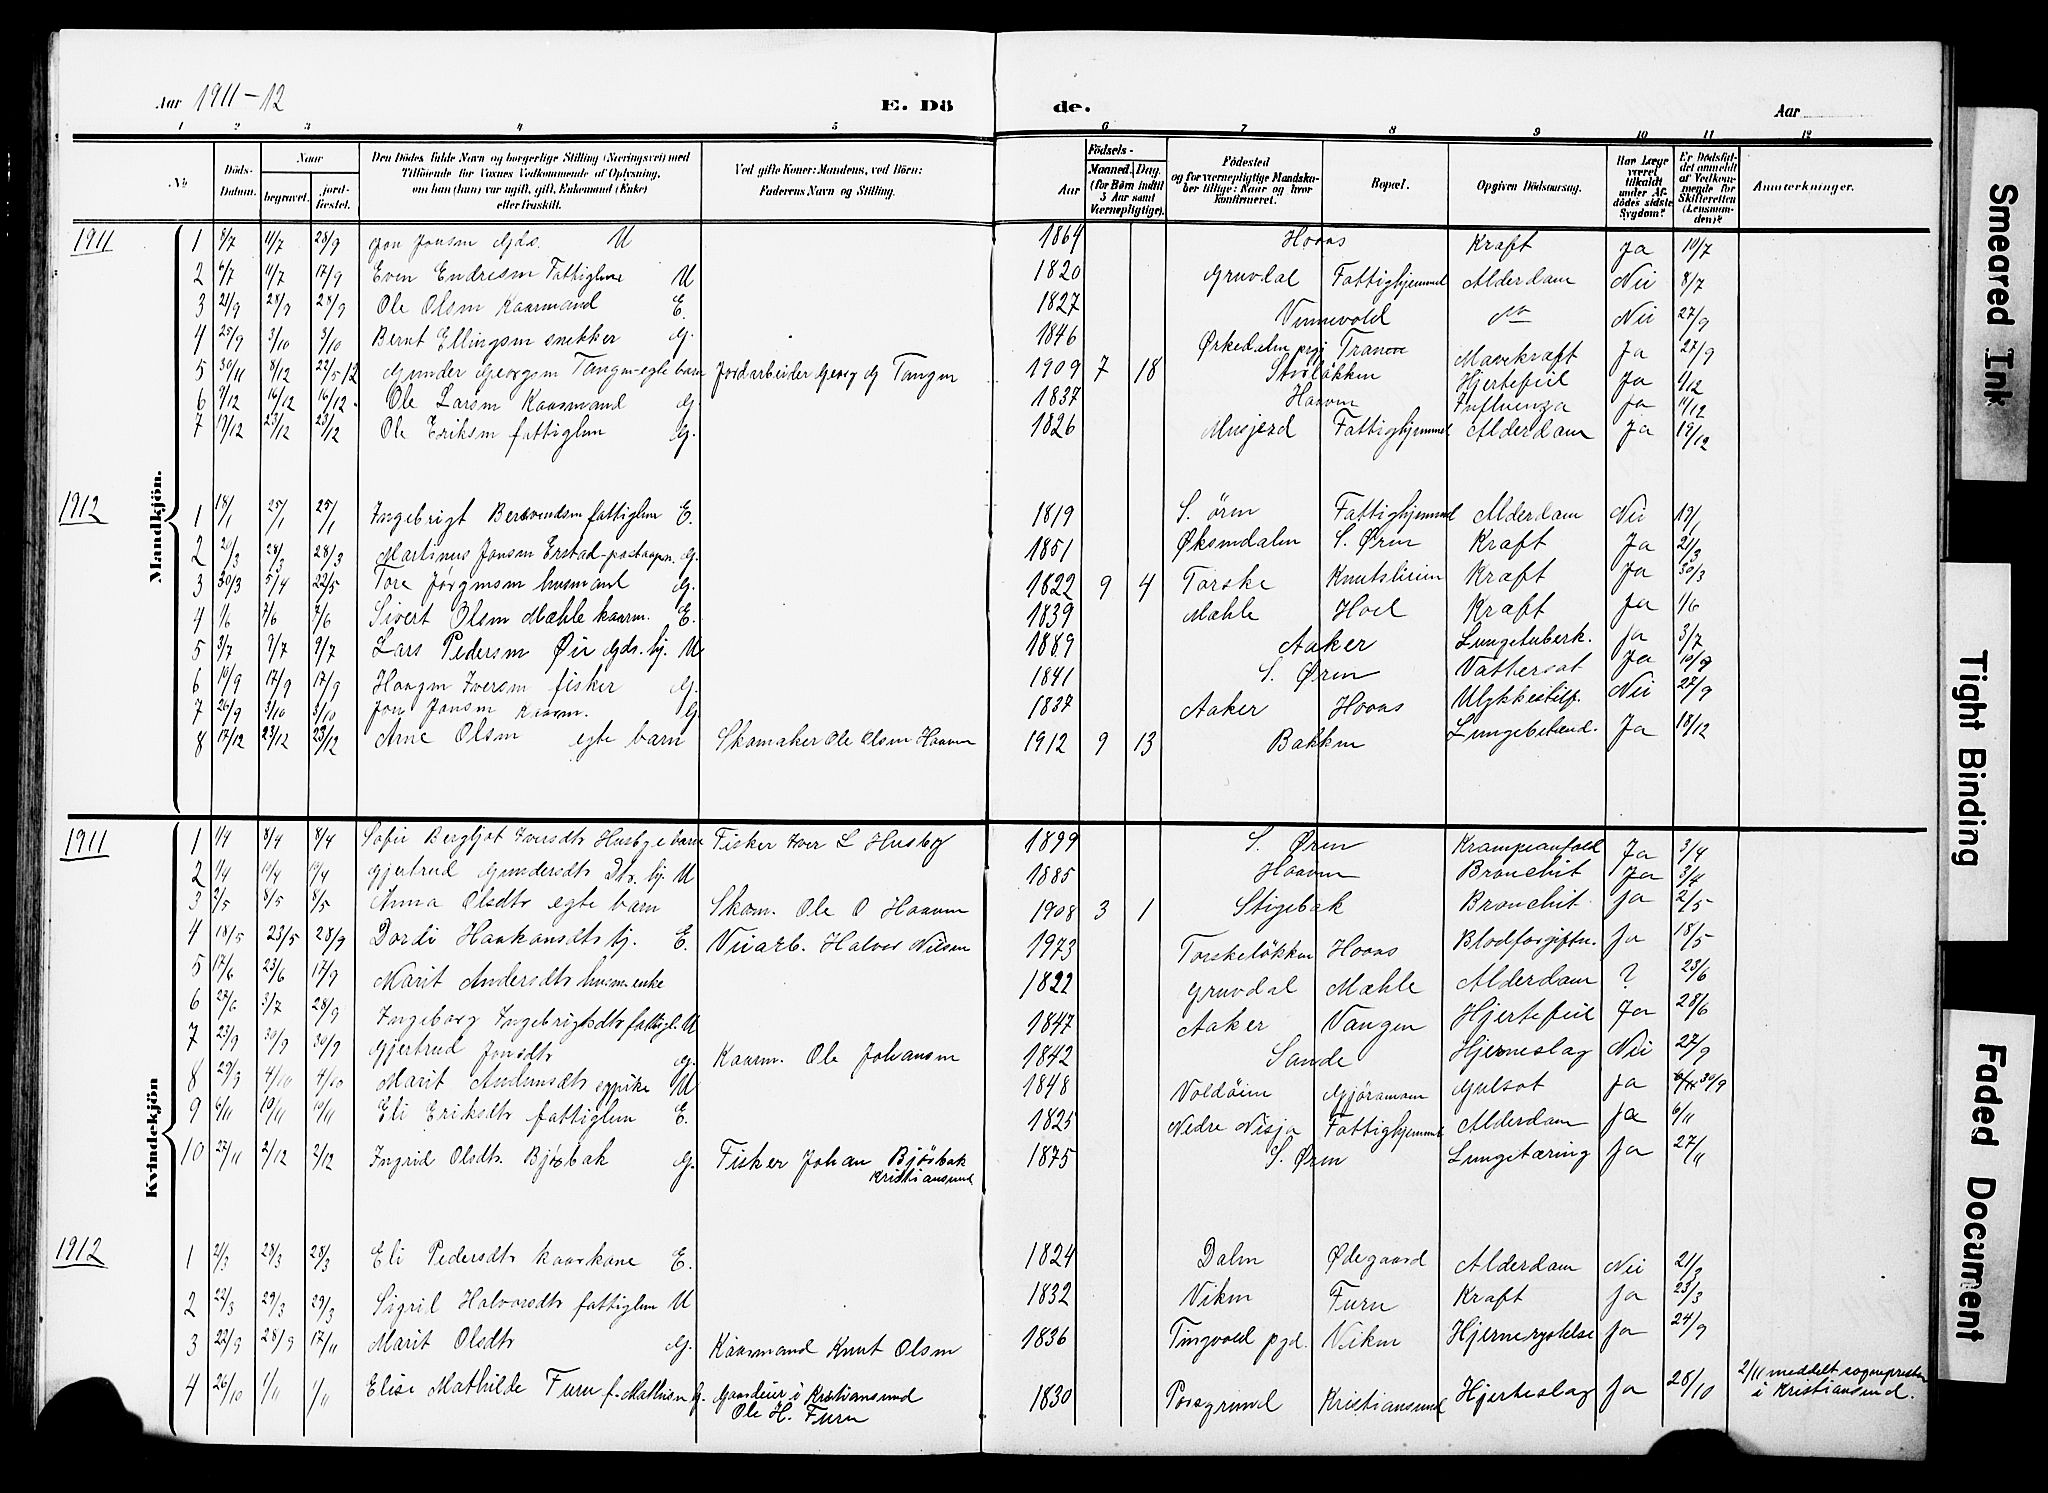 Aar 1911-12
E. Dö
de.
Aar
1 2 3 4 5 6 7 8 9 10 11 12
No
Döds-Datum.
Naar
begravet.
jord-fæstet.
Den Dödes fulde Navn og borgerlige Stilling (Næringsvei) med
Tilföiende for Voxnes Vedkommende af Oplysning,
om han (hun) var ugift, gift, Enkemand (Enke)
eller fraskilt.
Ved gifte Koner: Mandens, ved Börn:
Faderens Navn og Stilling.
Födsels-
Aar
Maaned. Dag
(for Börn indtil
5 Aar samt
Værnepligtige).
Födested
og for værnepligtige Mandska-
ber tillige: Naar og hvor
konfirmeret.
Bopæl.
Opgiven Dödsaarsag.
Har Læge
været
tilkaldt
under Af-
dödes sidste
Sygdom?
Er Dödsfal-
det anmeldt
af Vedkom-
mende for
Skifteretten
(Lensman-
den)?
Anmærkninger.
Mandkjön.
1911
1 8/7 11/7 28/9 Jon Jonsen Gds. U 1864 Hoaas Kraft Ja 10/7
2 6/7 11/7 17/9 Even Endresen Fattiglem U 1820 Gruvdal Fattighjemmet Alderdom Nei 8/7
3 21/9 28/9 28/9 Ole Olsen Kaarmand E. 1827 Vinnevold Do Nei 27/9
4 25/9 3/10 3/10 Bernt Ellingsen snekker G. 1846 Ørkedalen prgj Tranvoe Mavekraft Ja 27/9
5 30/11 8/12 22/5 12 Gunder Georgsen Tangen egte barn Jordarbeider Georg G Tangen 1909 7 18 Storløkken Hjertefeil Ja 1/12
6 9/12 16/12 16/12 Ole Larsen Kaarmand G 1837 Haaven Influenza Ja 11/12
7 17/12 23/12 23/12 Ole Eriksen fattiglem G. 1826 Misjerd Fattighjemmet Alderdom Ja 19/12
1912
1 18/1 25/1 25/1 Ingebrigt Bersvendsen fattiglem E. 1819 S. Ören Fattighjemmet Alderdom Nei 19/1
2 20/3 28/3 28/3 Martinus Jonsen Erstad-postaapn. G. 1851 Øksendalen S. Øren Kraft Ja 21/3
3 30/3 5/4 22/5 Tore Jørgensen husmand G. 1822 9 4 Torske Knutsheim Kraft Ja 30/3
4 1/6 7/6 7/6 Sivert Olsen Mæhle kaarm. E. 1839 Mæhle Hoel Kraft Ja 1/6
5 3/7 9/7 9/7 Lars Pedersen Øie Gds. bj. U 1889 Aaker Lungetuberk. Ja 3/7
6 10/9 17/9 17/9 Haagen Iversen fisker G. 1841 S. Øren Vattersot Ja 10/9
7 26/9 3/10 3/10 Jon Jonsen kaarm. G 1837 Aaker Hoaas Ulykkestilf. Nei 27/9
8 17/12 23/12 23/12 Arne Olsen egte barn Skomaker Ole Olsen Haaven 1912 9 13 Bakken Lungebetænd. Ja 18/12
Kvindekjön
1911
1 1/4 8/4 8/4 Sofie Bergljot Iversdtr Husby e barn Fisker Iver L Husby 1899 S. Øren Krampeanfald Ja 3/4
2 1/4 10/4 10/4 Gjertrud Gundersdtr Dtr. bj. U 1885 Haaven Bronchit Ja 3/4
3 2/5 8/5 8/5 Anna Olsdtr egte barn Skom. Ole O Haaven 1908 3 1 Stigebak Bronchit Ja 2/5
4 18/5 23/5 28/9 Dordi Haakansdtr bj. E. Veiarb. Halvor Nilsen 1973 Torskeløkken Hoaas Blodforgiftn. Ja 18/5
5 17/6 23/6 17/9 Marit Andersdtr husm. enke 1822 Gruvdal Mæhle Alderdom ? 23/6
6 27/6 3/7 28/9 Ingeborg Ingebrigtsdtr fattigl. U 1847 Aaker Vangen Hjertefeil Ja 28/6
7 23/9 30/9 30/9 Gjertrud Jonsdtr G. Kaarm. Ole Johansen 1842 Sande Hjerneslag Nei 27/9
8 29/9 4/10 4/10 Marit Andersdtr gpike U 1848 Voldøien Gjøramoen Gulsot Ja 30/9
9 6/11 10/11 10/11 Eli Eriksdtr fattiglem E. 1825 Nedre Nisja Fattighjemmet Alderdom Ja 6/11
10 27/11 2/12 2/12 Ingrid Olsdtr. Bjøsbak G. Fisker Johan Bjøsbak Kristiansund 1875 S. Øren Lungetæring Ja 27/11
1912
1 21/3 28/3 28/3 Eli Pedersdtr kaarkone E. 1824 Dalen Ødegaard Alderdom Nei 21/3
2 22/3 29/3 29/3 Sigril Halvorsdtr fattiglem U 1832 Viken Furu Kraft Ja 23/3
3 22/9 28/9 17/11 Marit Olsdtr G. Kaarmand Knut Olsen 1836 Tingvold pgd. Viken Hjernerystelse Ja 24/9
4 26/10 1/11 1/11 Elise Mathilde Furu f. Mathisen G. Gaardeier i Kristiansund Ole H. Furu 1830 Porsgrund Kristiansund Hjerteslag Ja 28/10 2/11 meddelt sognepresten i Kristiansund.
Smeared Ink
Tight Binding
Faded Document